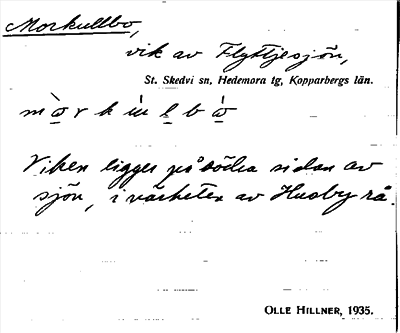 Morkullbo,
vik av Flyttjesjön,
St. Skedvi sn, Hedemora tg, Kopparbergs län.
Viken ligger på södra sidan av
sjön, i närheten av Husby rå.
OLLE HILLNER, 1935.